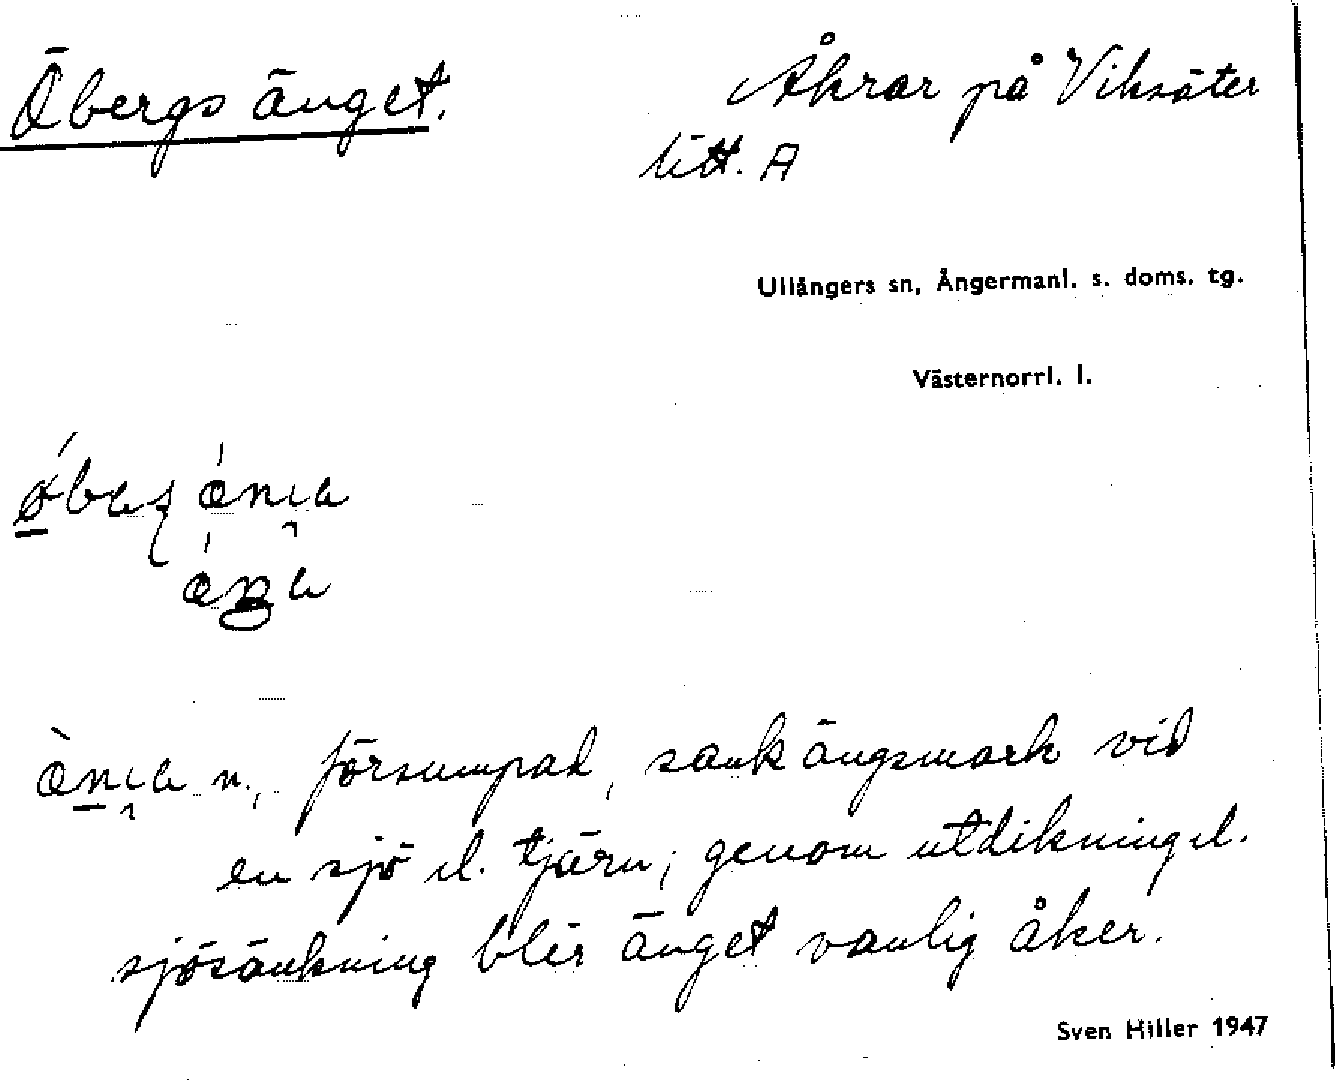 Öbergs änget.
Åkrar på Viksäter
litt. A
Ullångers sn, Ångermanl. s. doms. tg.
Västernorrl. l.
n., försumpad, sank ängsmark vid
en sjö el. tjärn; genom utdikning el.
sjösänkning blir änget vanlig åker.
Sven Hiller 1947